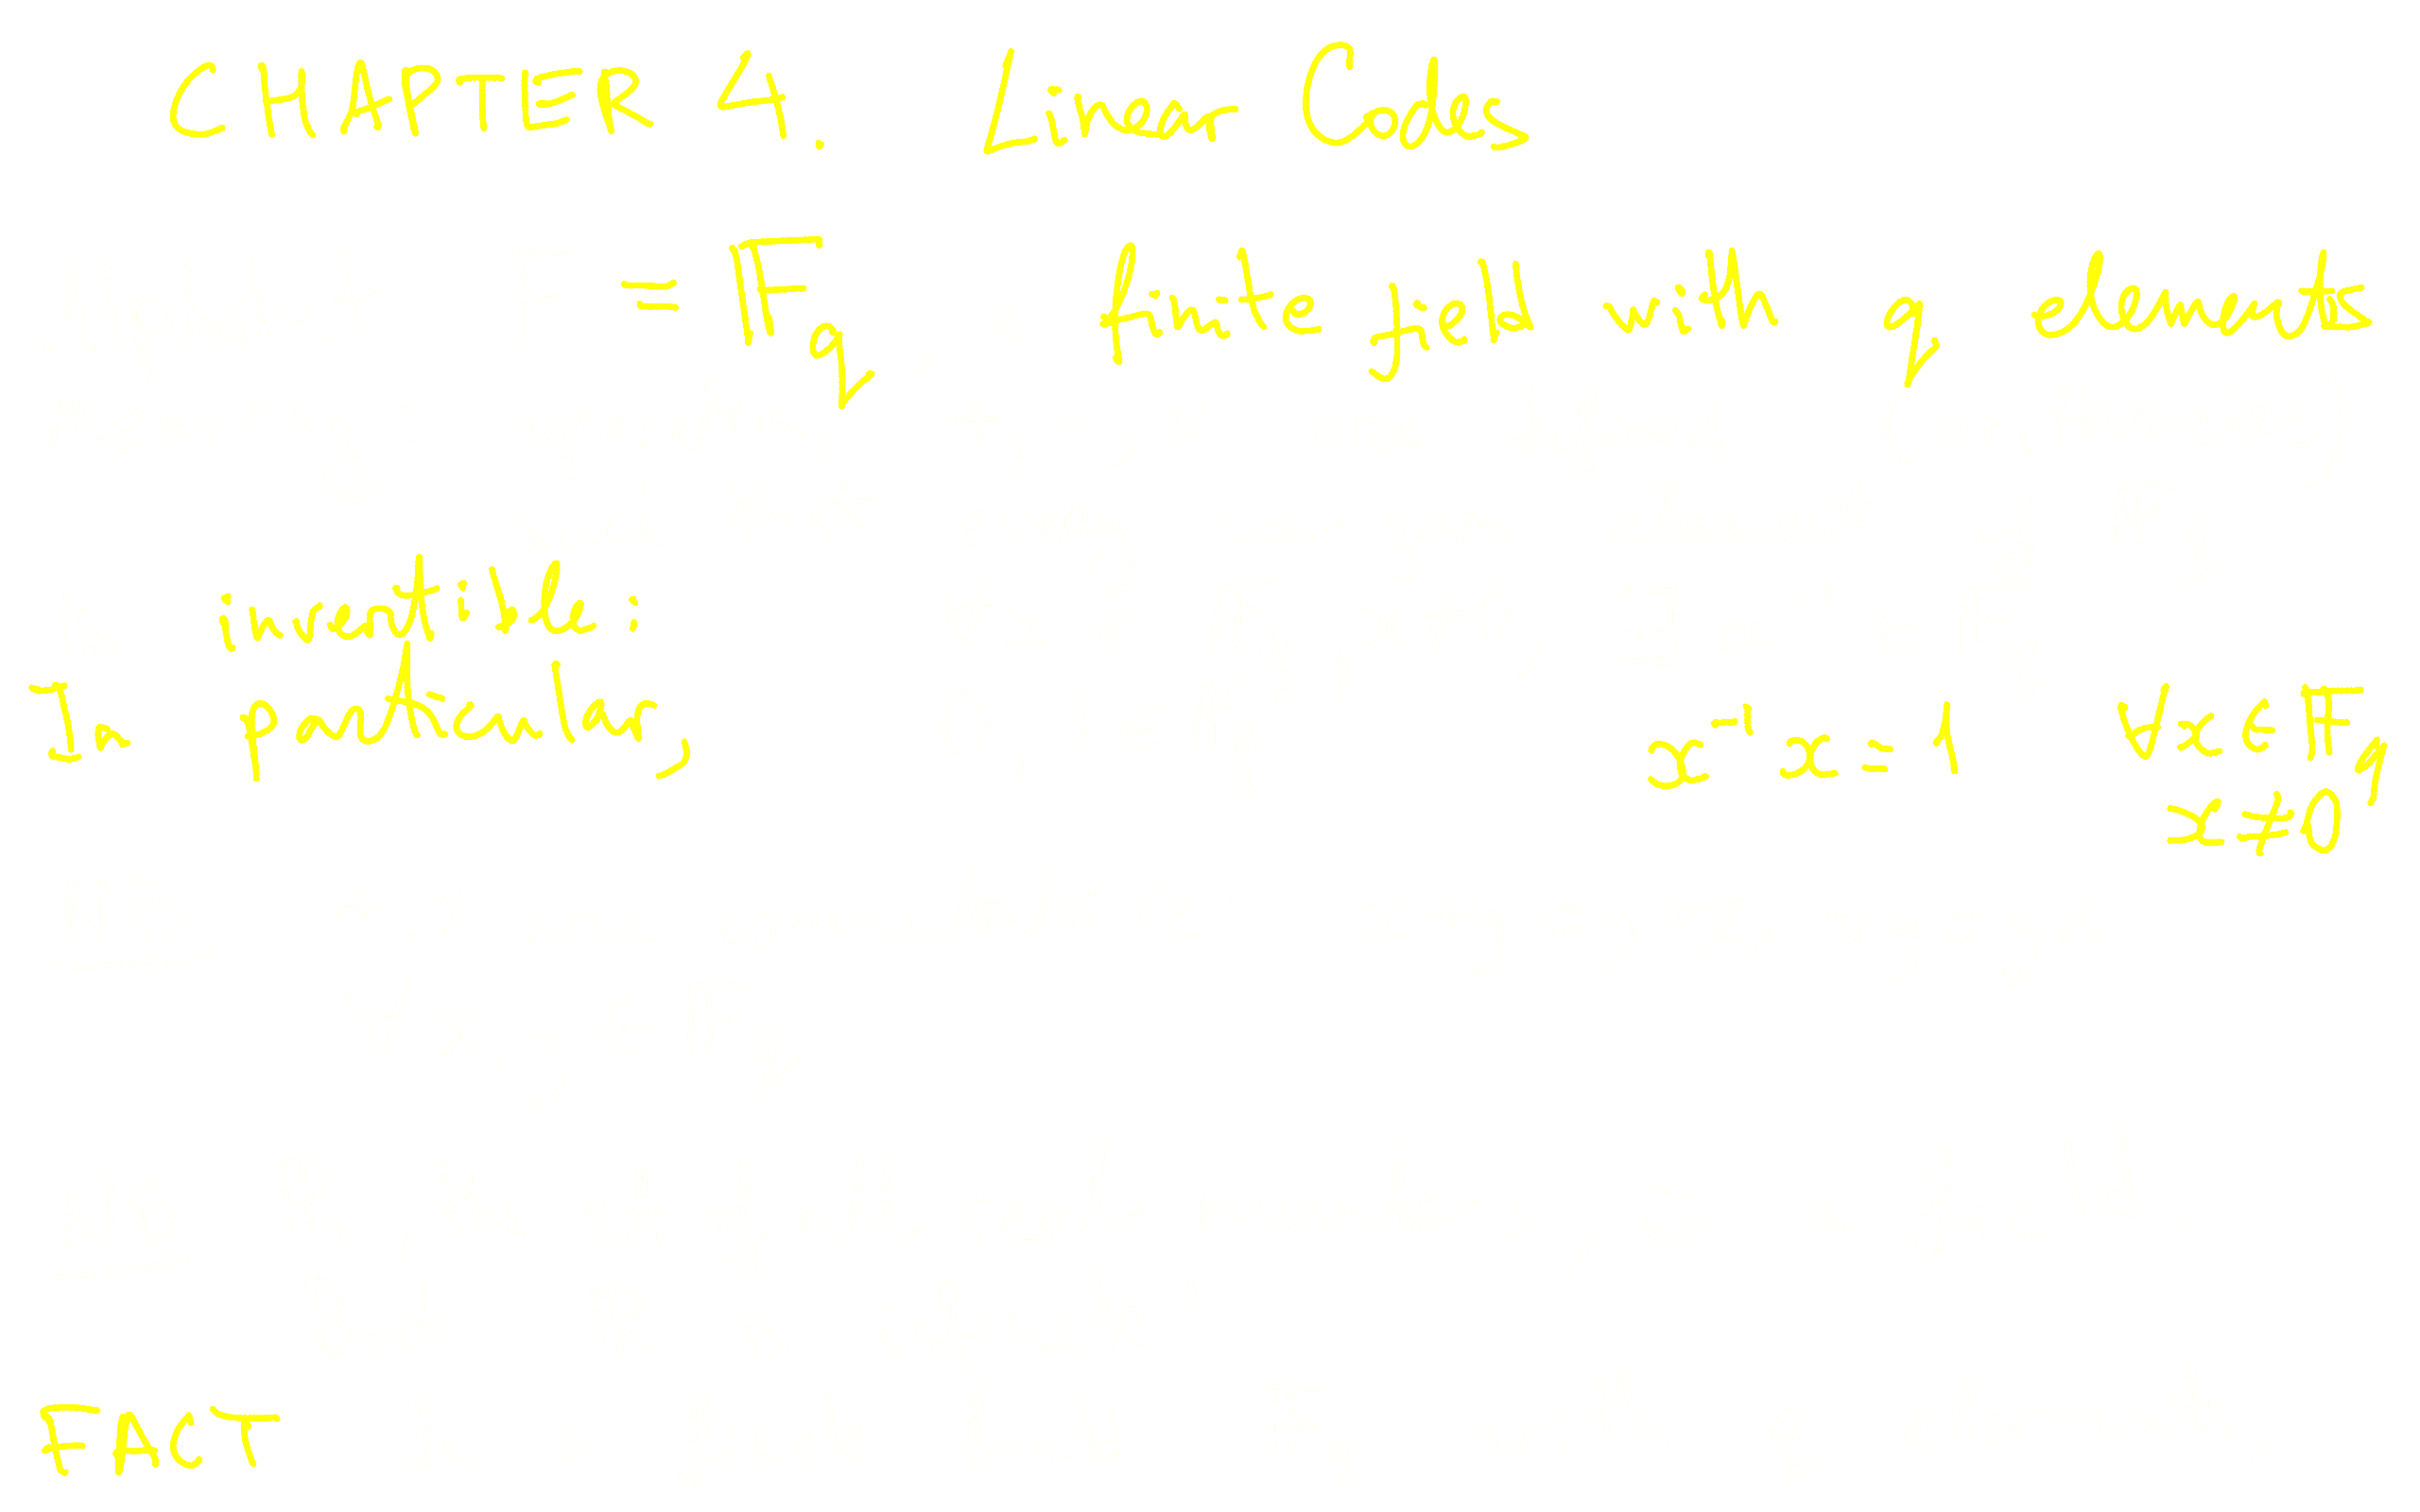 CHAPTER 4. Linear Codes
= 𝔽q finite field with q elements
invertible:
In particular, x⁻¹x=1 ∀x∈𝔽q
x≠0
FACT